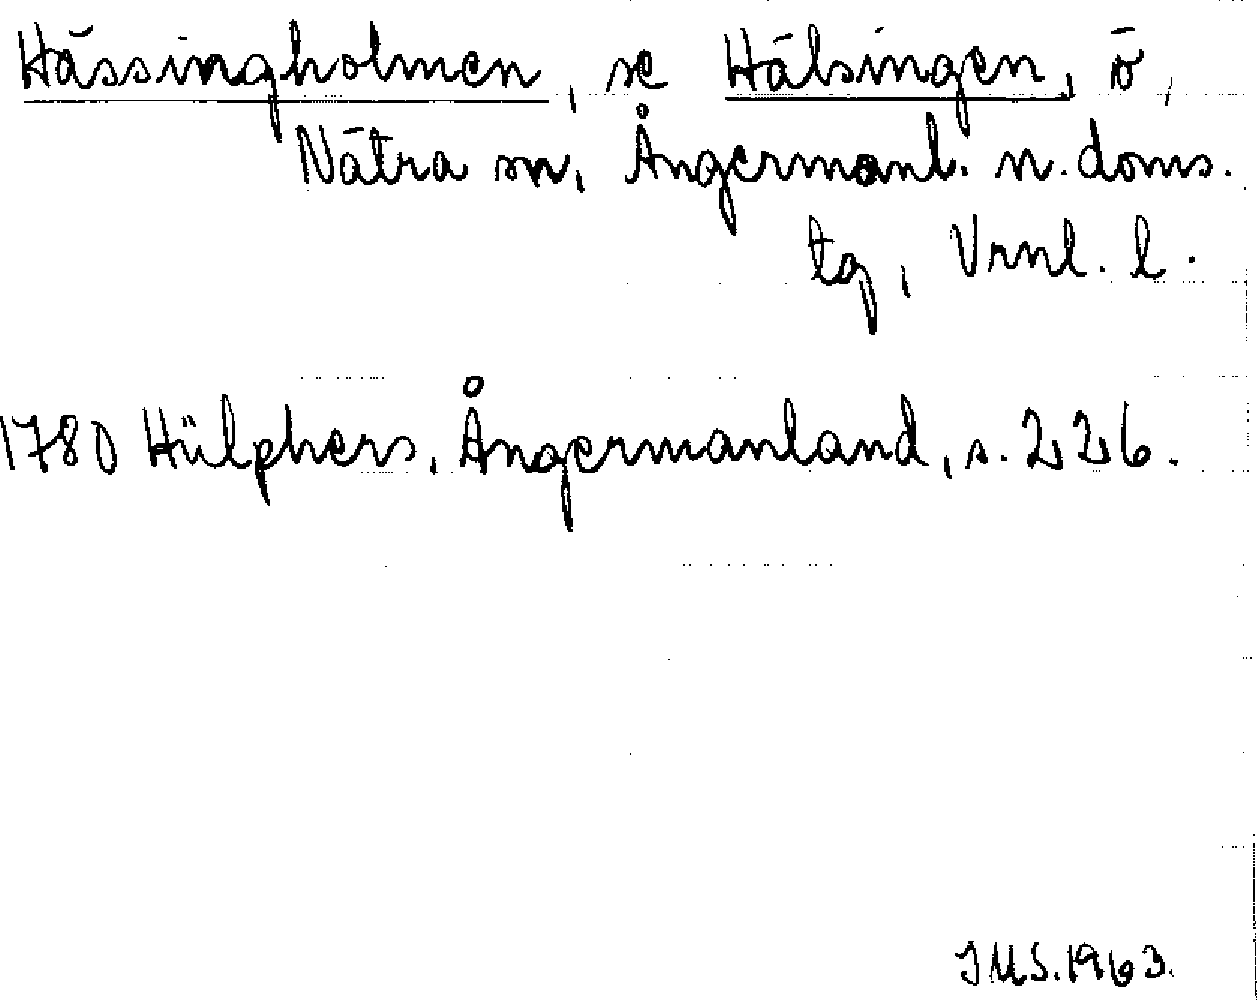 Hässingholmen, se Hälsingen, ö,
Nätra sn, Ångermanl. n. doms.
tg, Vrnl. l.
1780 Hülphers, Ångermanland, s. 226.
JMS. 1963.